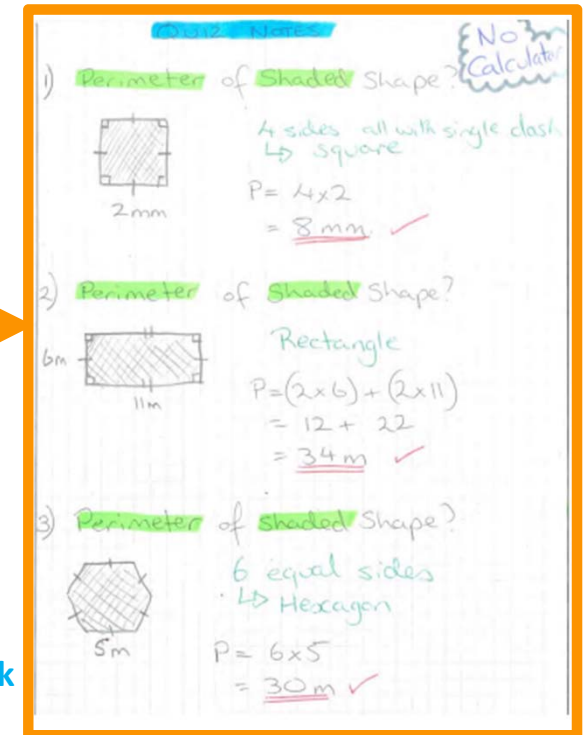 QUIZ NOTES
No
Calculator
1) Perimeter of Shaded Shape?
4 sides all with single dash
↳ square
2mm
P= 4x2
= 8mm ✓
2) Perimeter of Shaded Shape?
Rectangle
6m
11m
P=(2x6)+(2x11)
= 12 + 22
= 34 m ✓
3) Perimeter of shaded Shape?
6 equal sides
↳ Hexagon
5m
P= 6x5
= 30m ✓
k